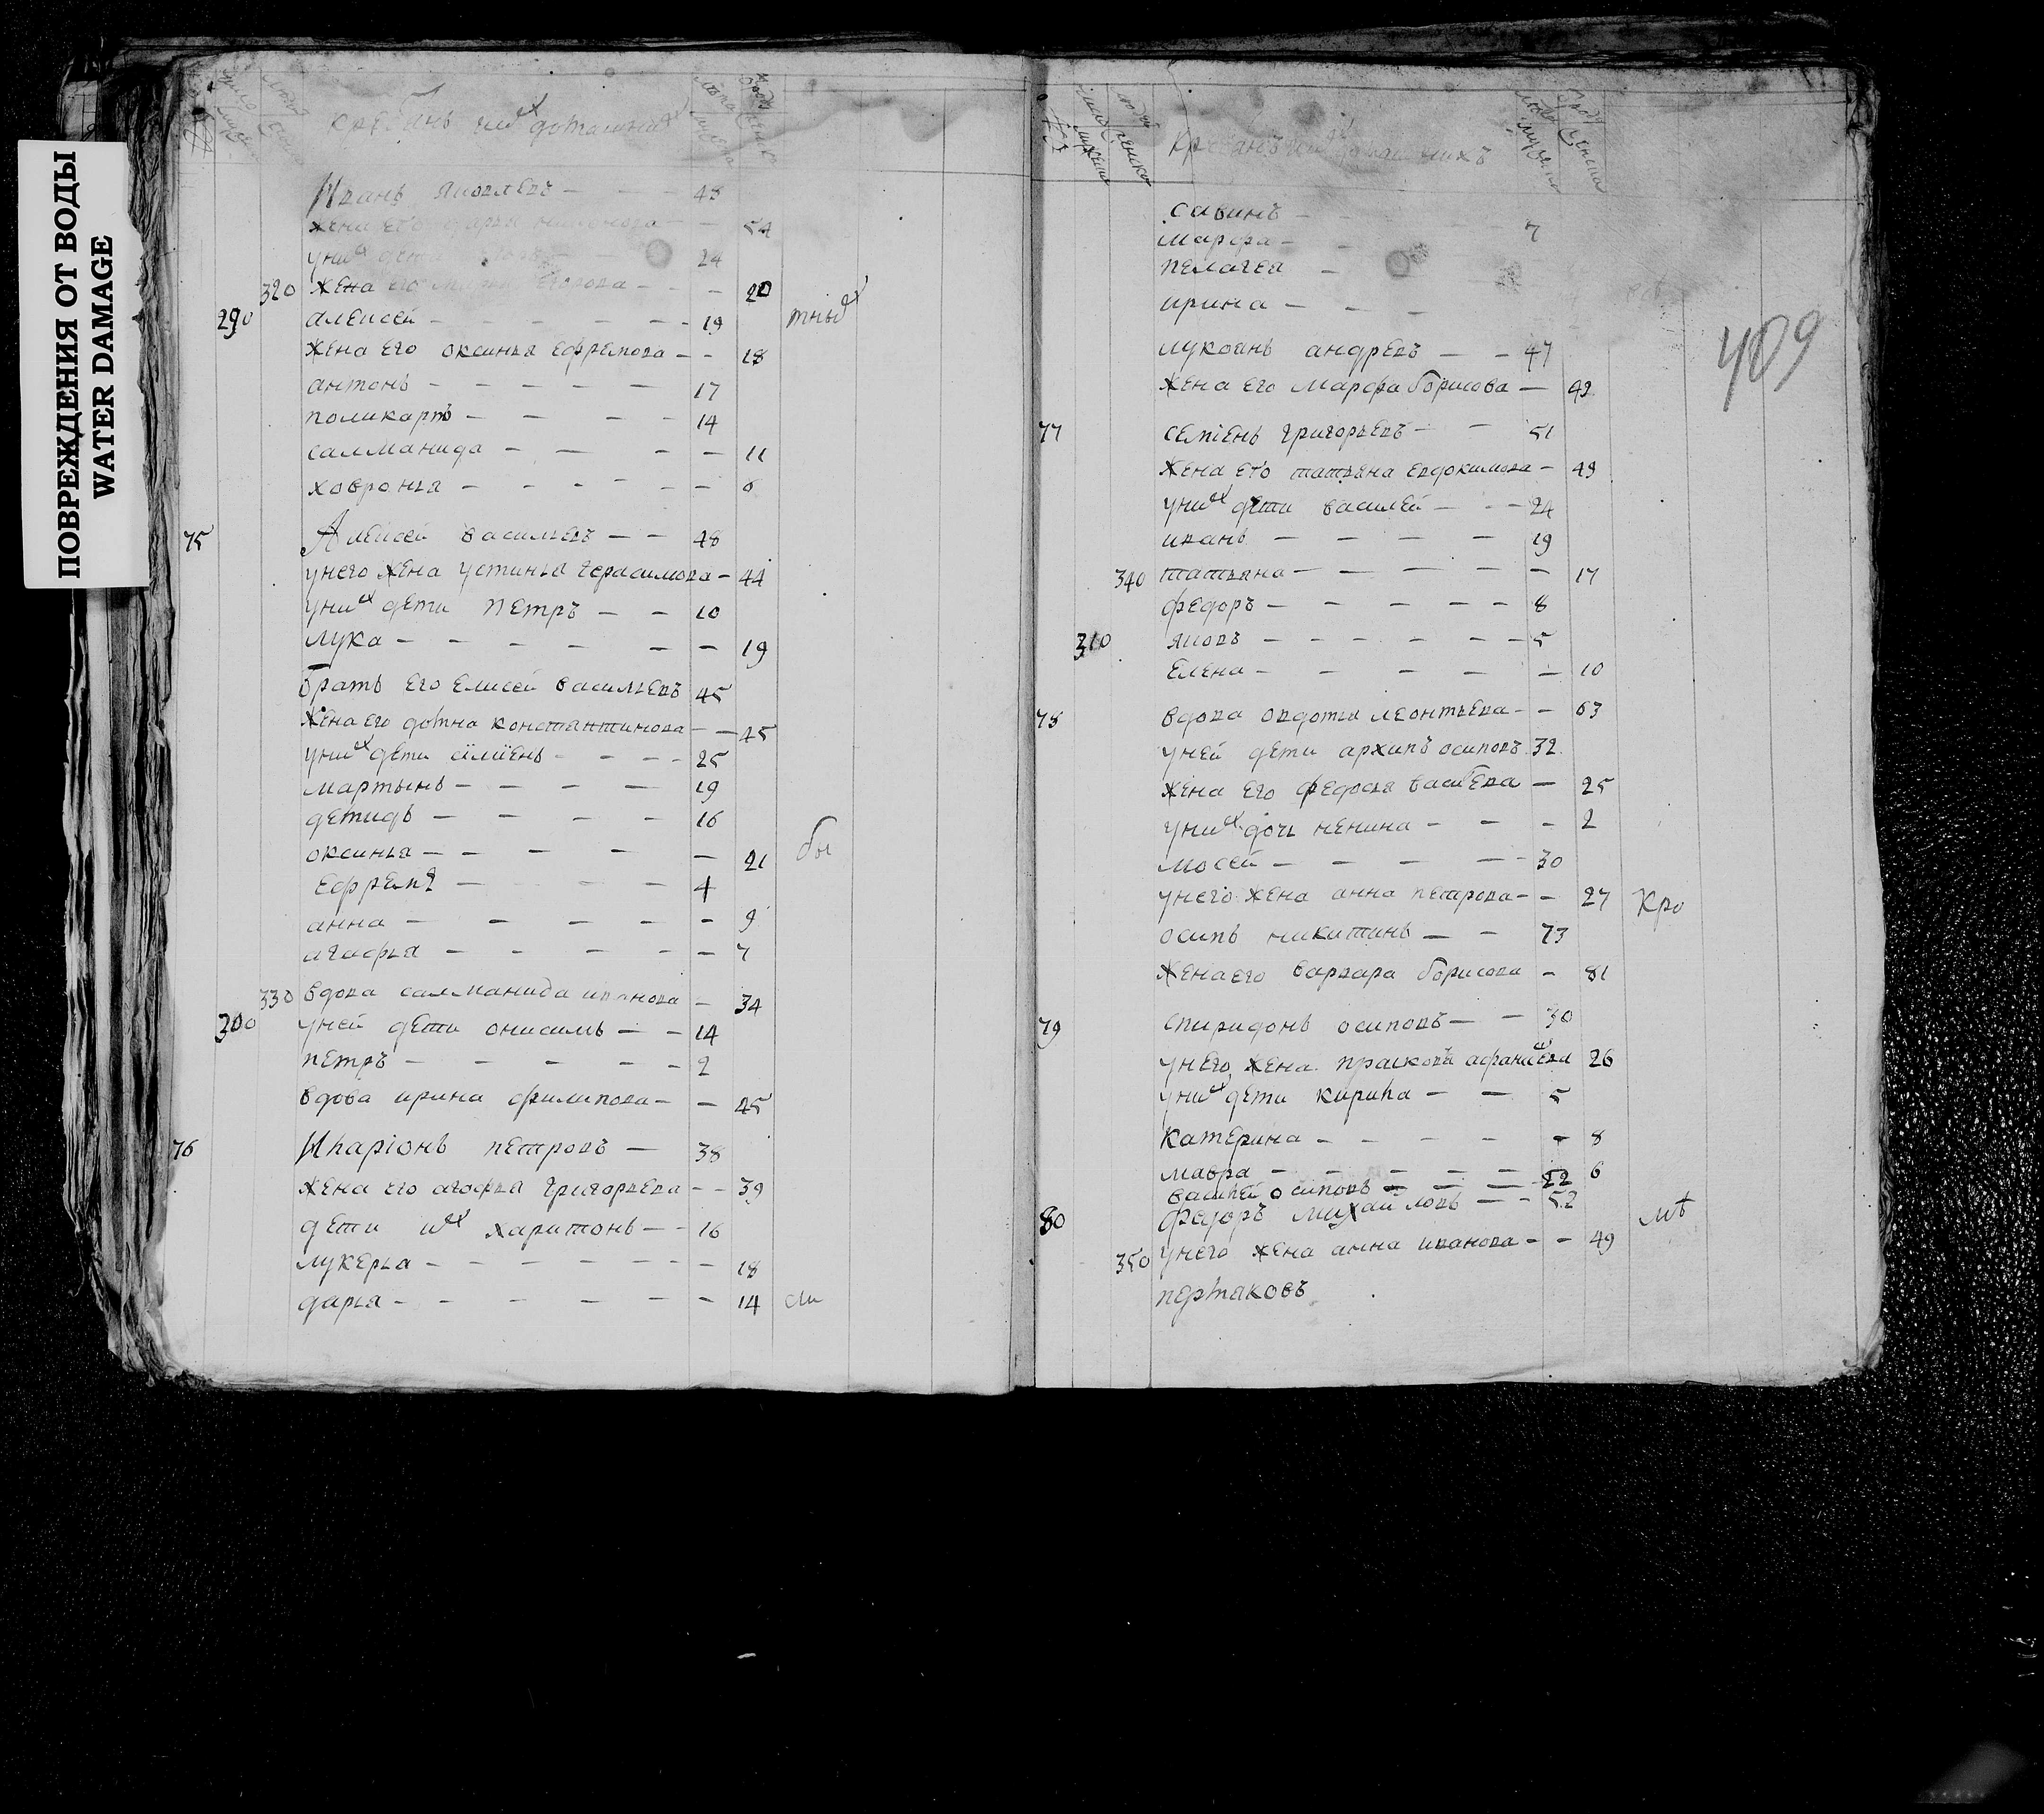 ПОВРЕЖДЕНИЯ ОТ ВОДЫ
WATER DAMAGE
Иванъ яковлевъ — 48
жена его 54
уних дети 24
320 жена его егорова — 20
290 алеѯей — 19 тных
жена его оксинья ефремова — 18
антонъ — 17
поликарпъ — 14
салманида — 11
ховронья — 6
75 Алеѯей васильевъ — 48
унего жена устинья герасимова — 44
уних дети петръ — 10
лука — 19
братъ его елисей васильевъ 45
жена его домна константинова — 45
уних дети симиенъ — 25
мартынъ — 19
демидъ — 16
оксинья — 21 бы
ефремъ — 4
анна — 9
агафья — 7
330 вдова салманида иванова — 34
300 уней дети онисимъ — 14
петръ — 2
вдова ирина филипова — 45
76 Иларіонъ петровъ — 38
жена его агофья григорьева — 39
дети их харитонъ — 16
лукерья — 18
дарья — 14 сми
409
савинъ — 7
марфа —
пелагея —
ирина —
лукоянъ андревъ — 47
жена его марфа борисова — 42
77 семіенъ григорьевъ — 51
жена его татьяна евдокимова — 49
уних дети василей — 24
иванъ — 19
340 татьяна — 17
федоръ — 8
310 яковъ — 5
елена — 10
78 вдова овдотья леонтьева — 63
уней дети архипъ осиповъ 32
жена его федосья васильева — 25
уних дочь ненила — 2
мосей — 30
унего жена анна петрова — 27 Кро
осипъ никитинъ — 73
жена его варвара борисова — 81
79 спиридонъ осиповъ — 30
унего жена прасковья афанасьева 26
уних дети кирила — 5
катерина — 8
мавра — 6
василей осиповъ — 22
80 федоръ михайловъ — 52 мѣ
350 унего жена анна иванова — 49
пермяковъ